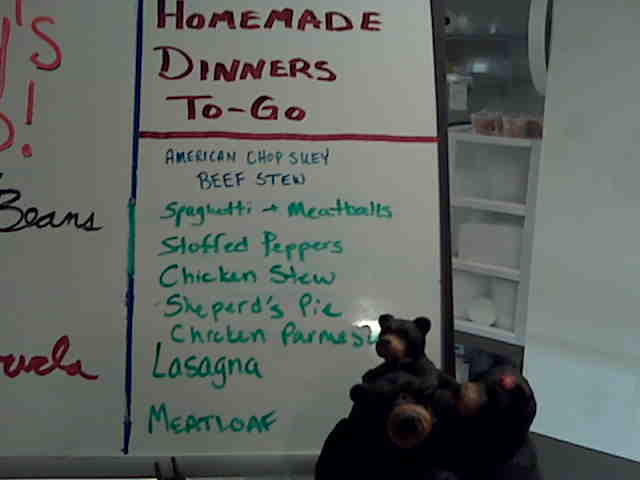 HOMEMADE
DINNERS
TO-GO
AMERICAN CHOP SUEY
BEEF STEW
Spaghetti + Meatballs
Stoffed Peppers
Chicken Stew
Sheperd's Pie
Chicken
Lasagna
MEATLOAF
Beans